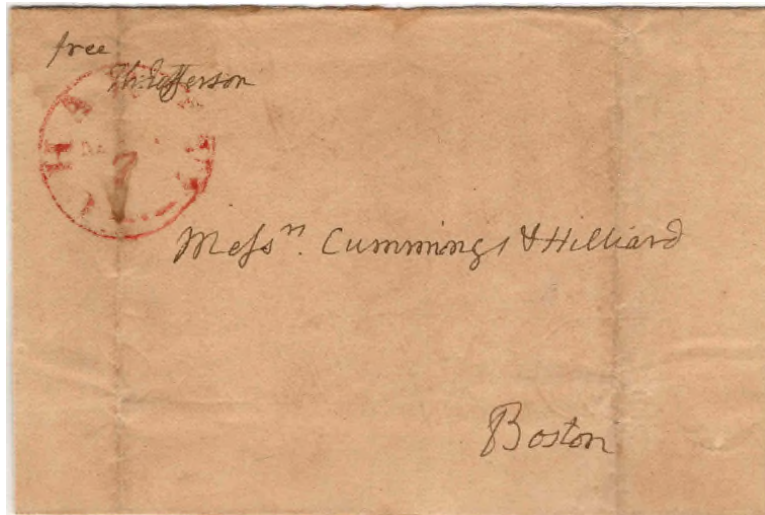 free
Th: Jefferson
Mеſsrs. Cummings & Hilliard
Boston